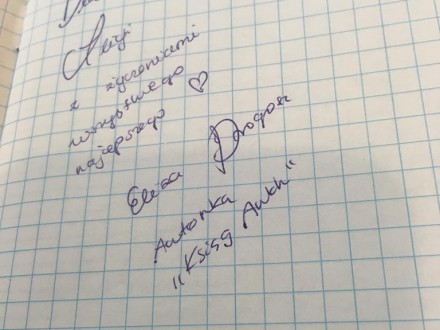 z życzeniami
wszystkiego
najlepszego ♡
Eliza Drogosz
Autorka
"Ksiąg Ankh"